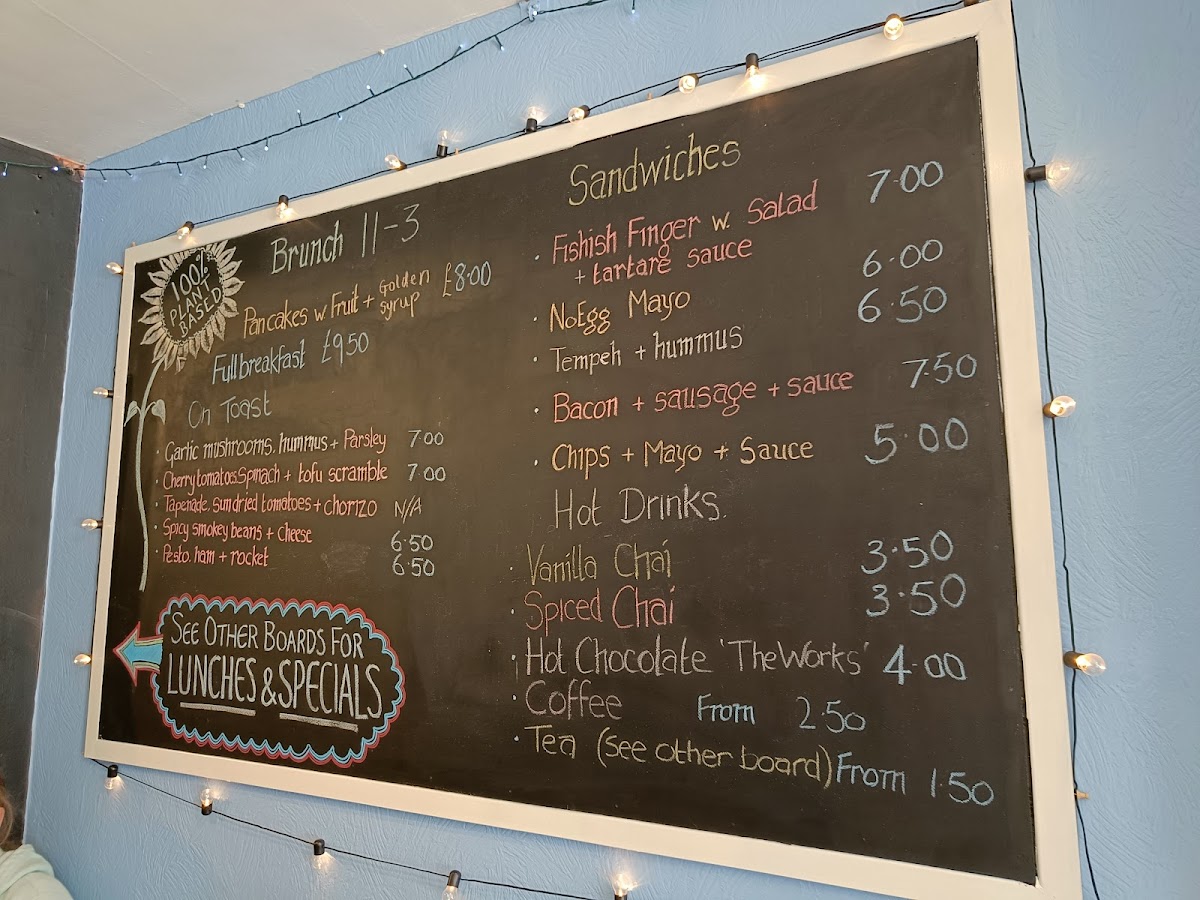 100%
PLANT
BASED
Brunch 11-3
Pancakes w Fruit + Golden syrup £8.00
Full breakfast £9.50
On Toast
· Garlic mushrooms, hummus + Parsley 7.00
· Cherry tomatoes, Spinach + tofu scramble 7.00
· Tapenade, sundried tomatoes + chorizo N/A
· Spicy smokey beans + cheese 6.50
· Pesto, ham + rocket 6.50
SEE OTHER BOARDS FOR
LUNCHES & SPECIALS
Sandwiches
· Fishish Finger w. Salad 7.00
+ tartare sauce
· NoEgg Mayo 6.00
· Tempeh + hummus 6.50
· Bacon + sausage + sauce 7.50
· Chips + Mayo + Sauce 5.00
Hot Drinks.
· Vanilla Chai 3.50
· Spiced Chai 3.50
· Hot Chocolate 'The Works' 4.00
· Coffee From 2.50
· Tea (see other board) From 1.50